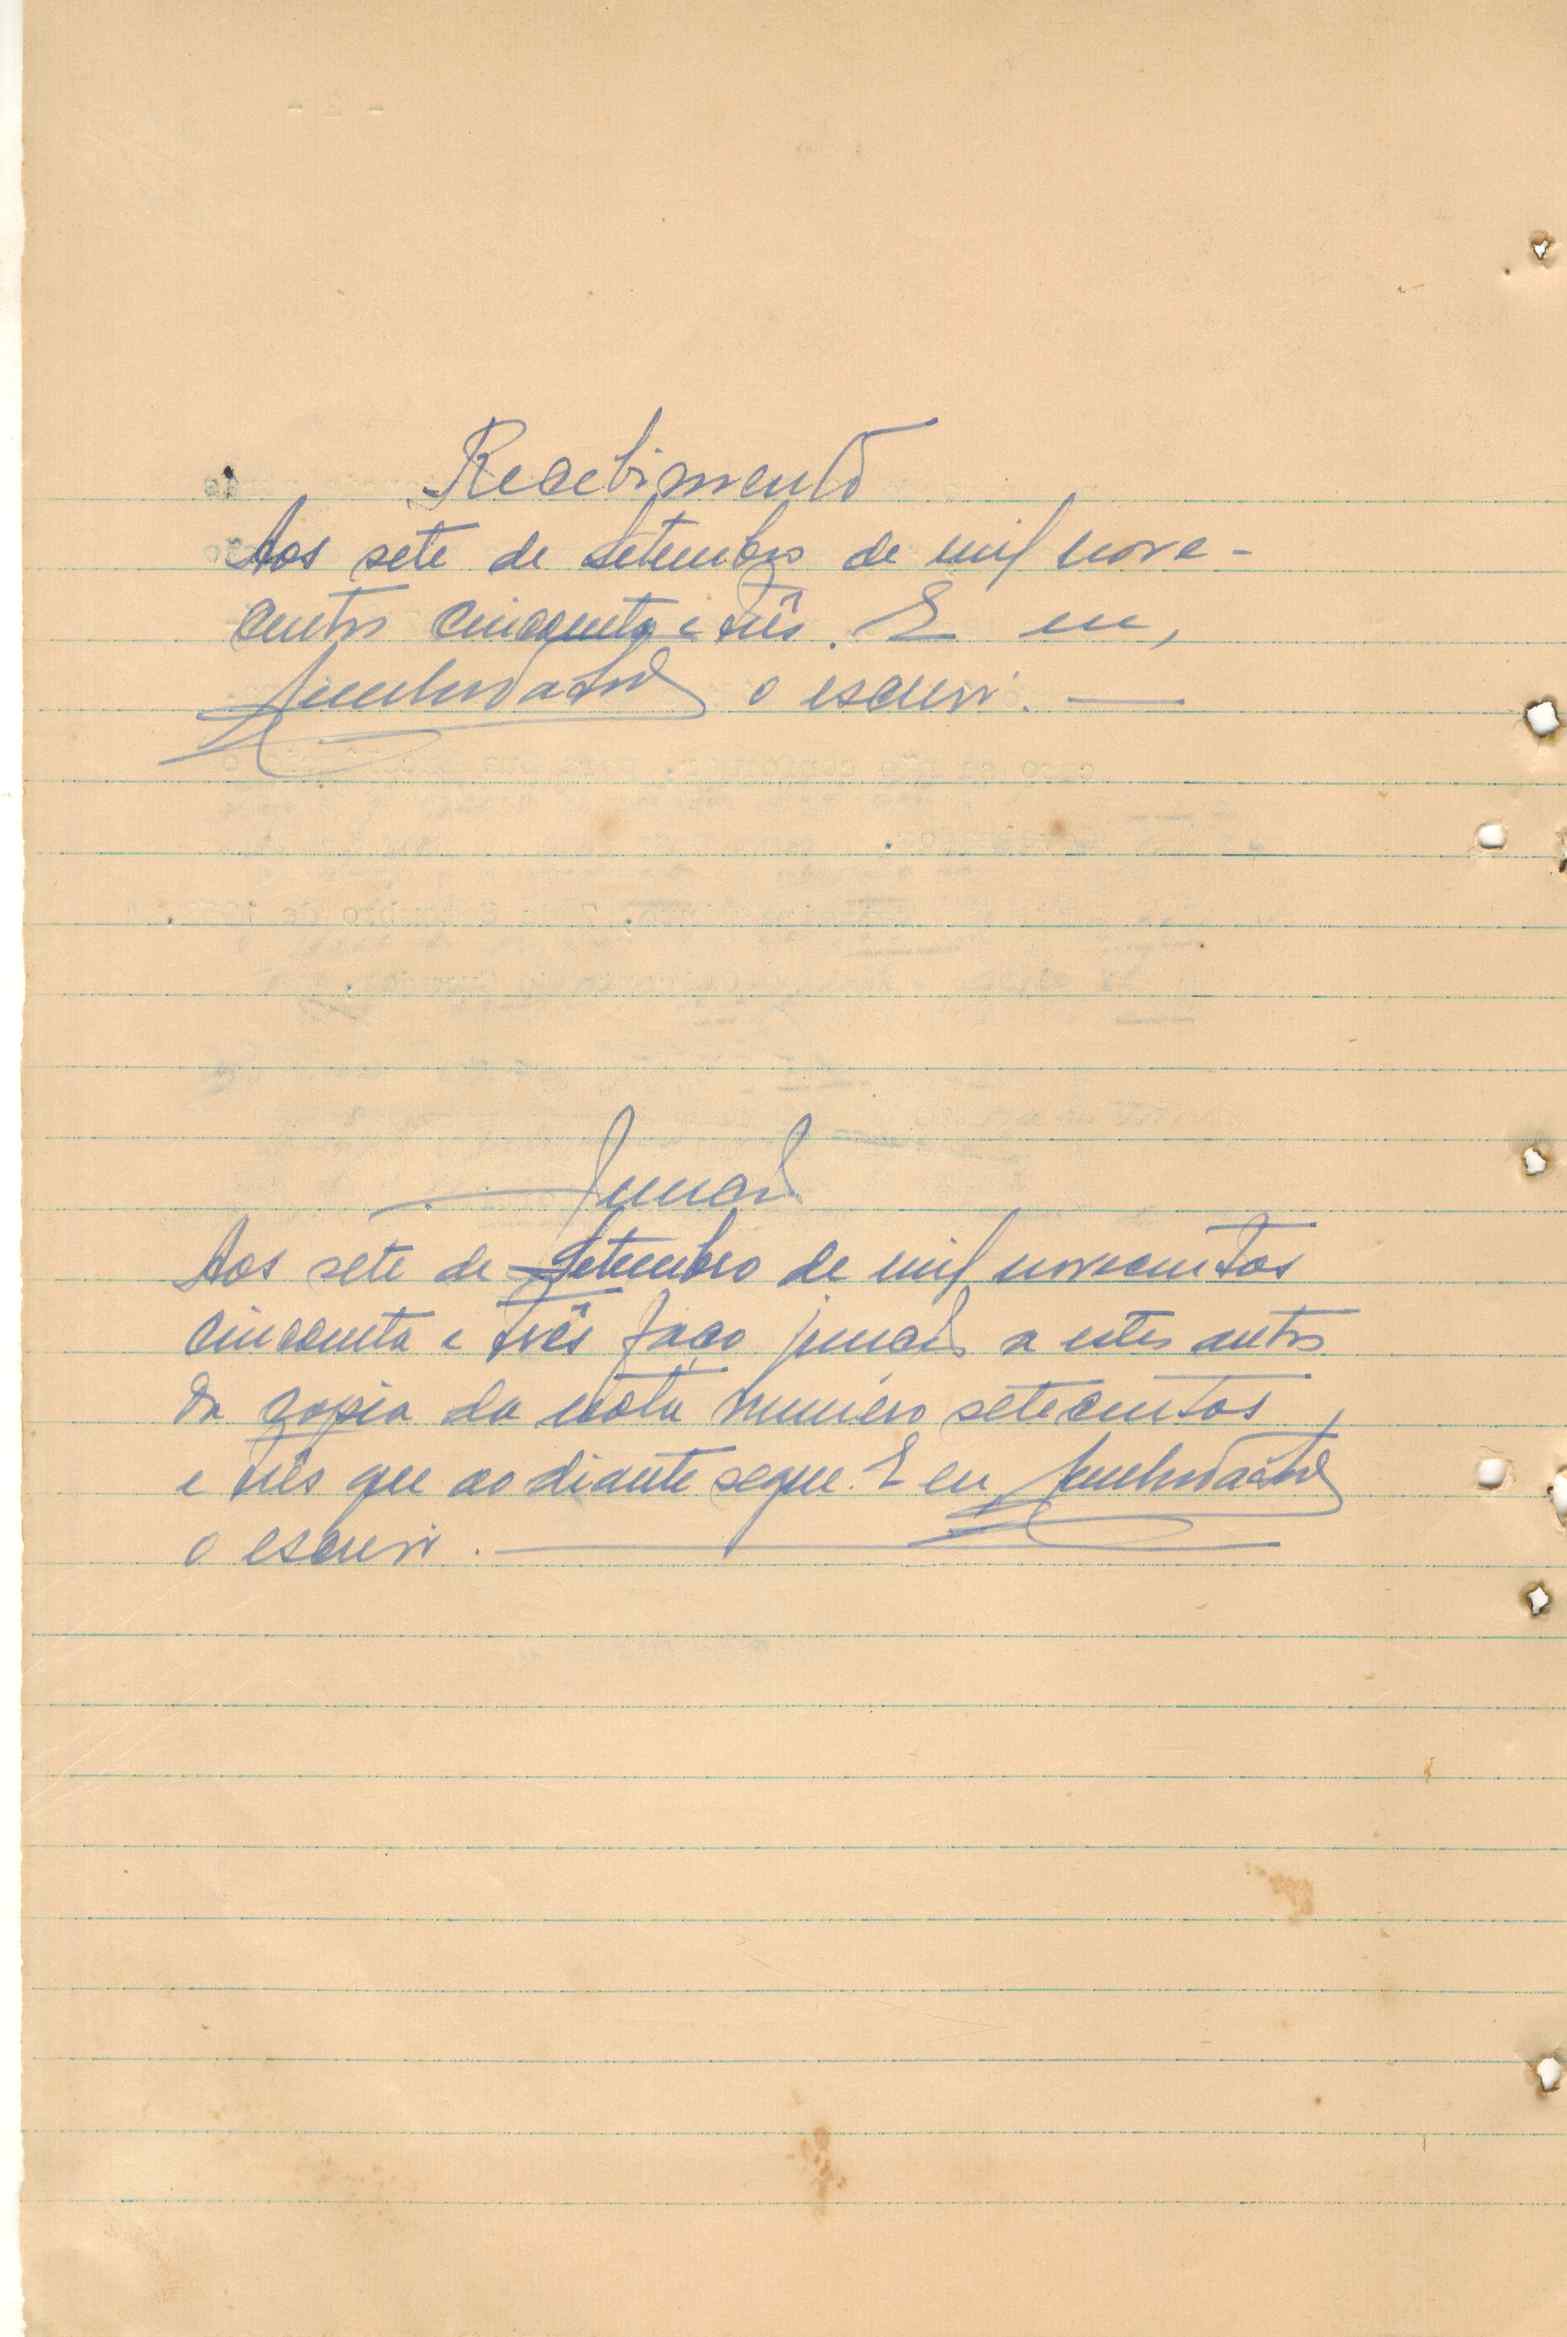 Recebimento
Aos sete de Setembro de mil nove-
centos cinconta e três. E eu,
o escrevi.
Junção
Aos sete de Setembro de mil novecentos
cinconta e três faço junção a estes autos
da copia da nota numero setecentos
e três que ao diante segue. E eu
o escrevi.